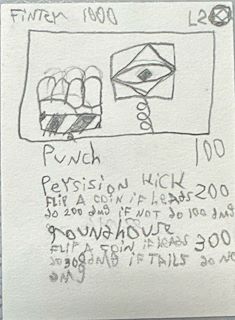 FINTER 1000 L2
PUNCH 100
PERSISION KICK 200
FLIP A COIN IF HEADS
do 200 dmg IF NOT do 100 dmg
groundhouse 300
FLIP A COIN IF HEADS
do 300 dmg IF TAILS do NO
dmg